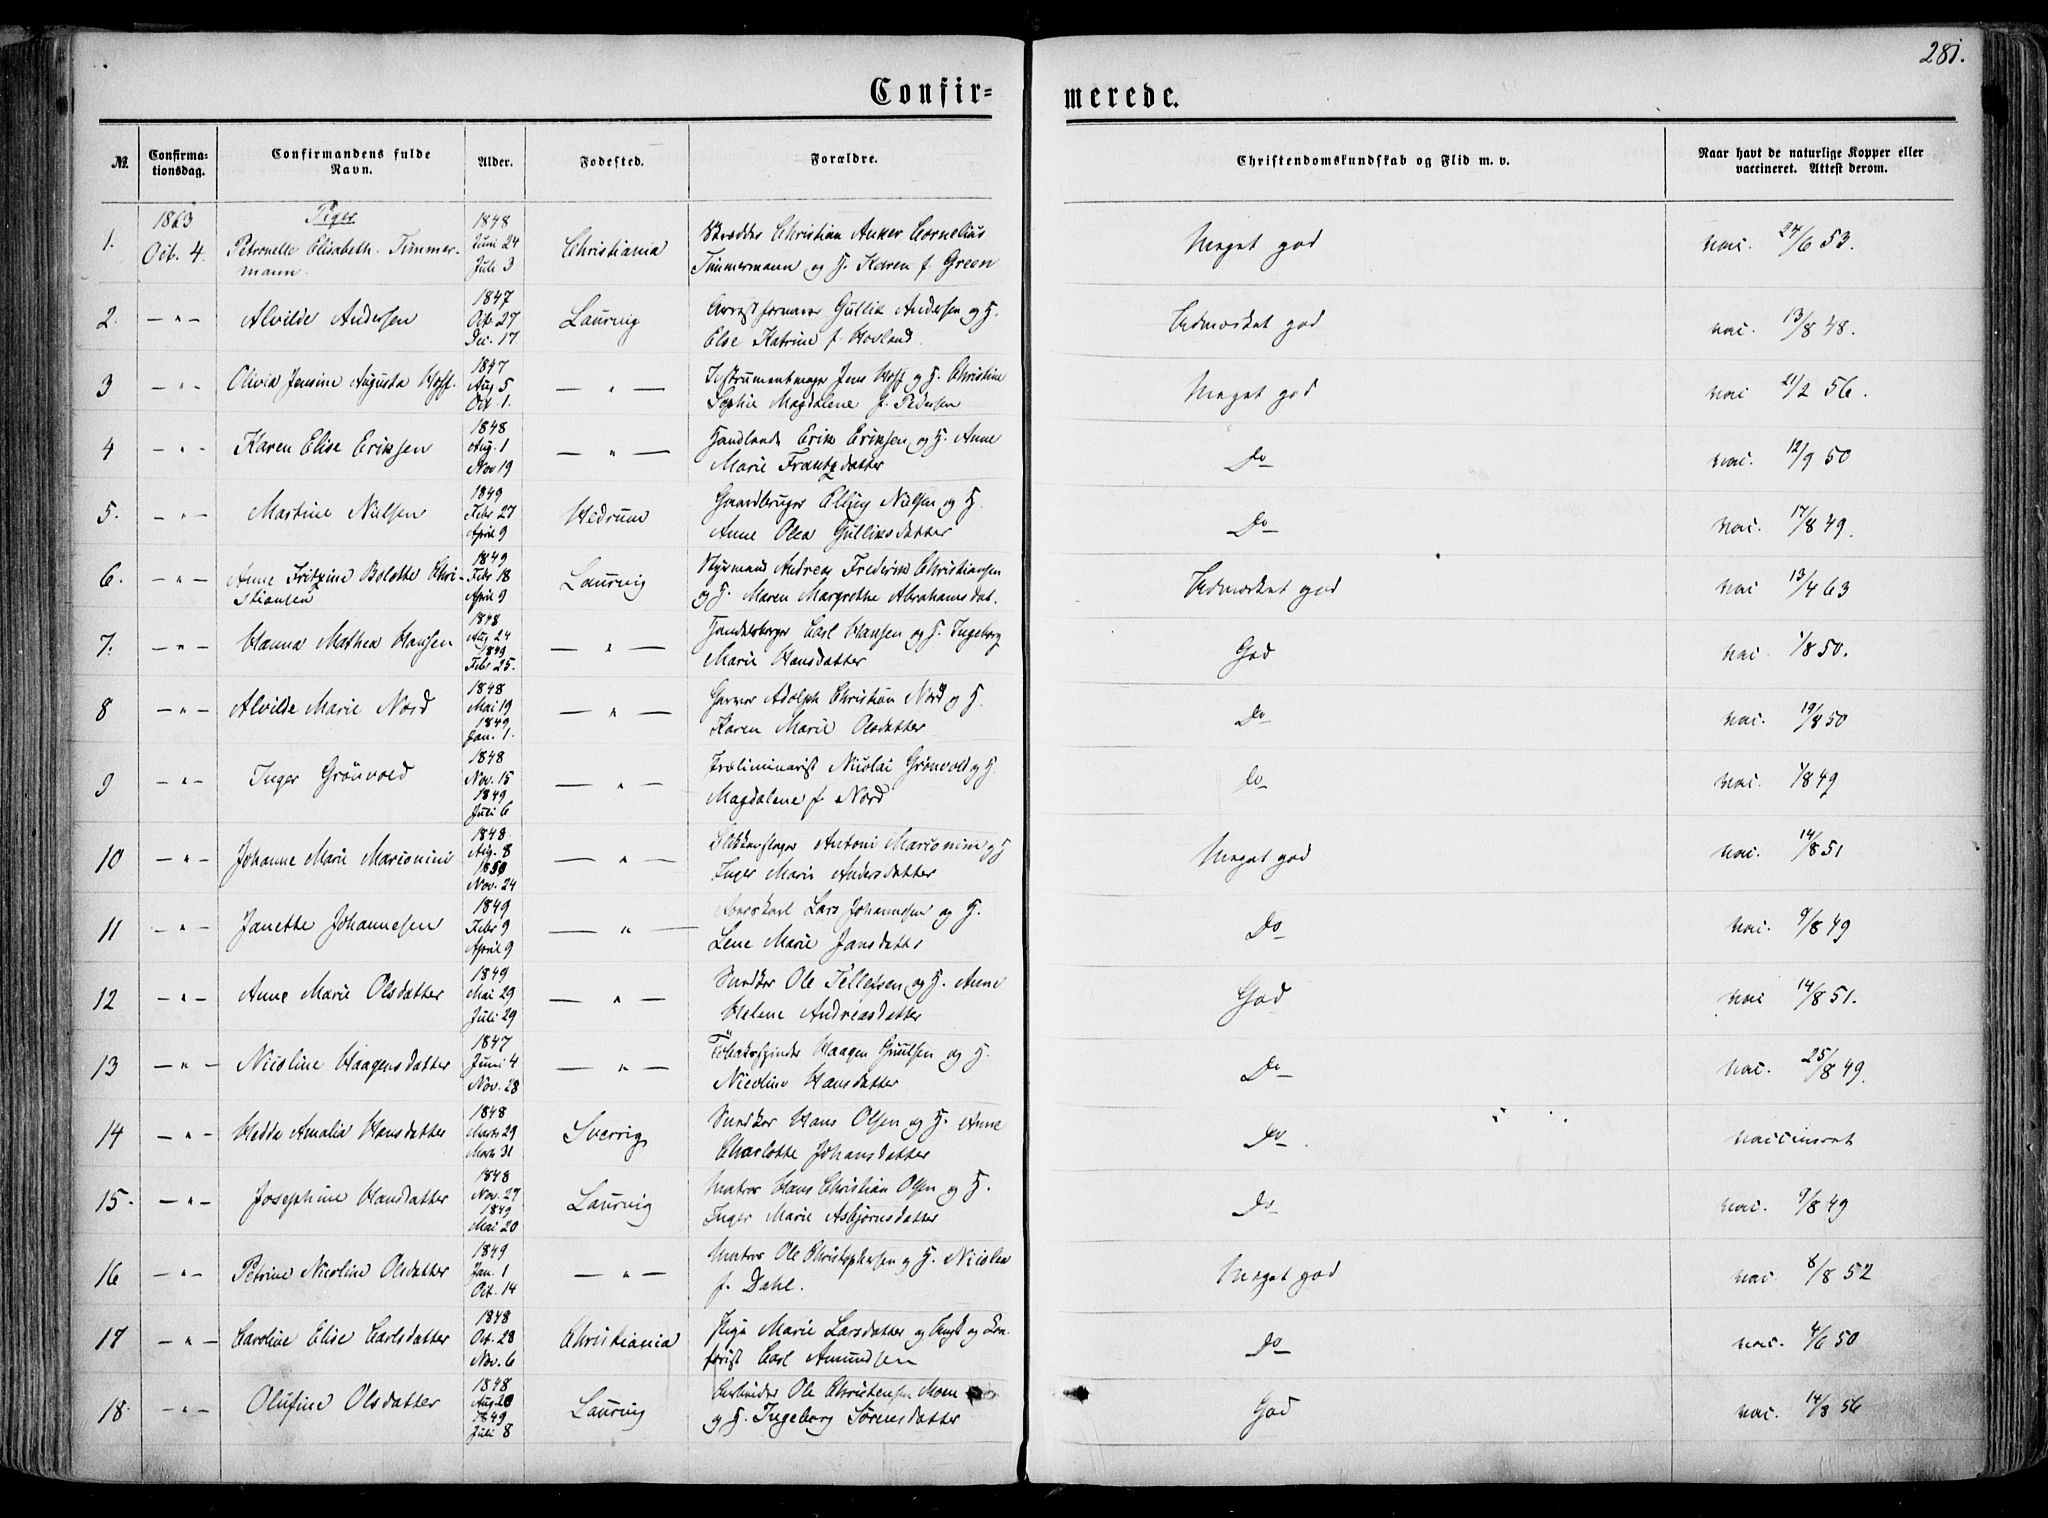 281.
Confir-
merede.
No.
Confirma-
tionsdag.
Confirmandens fulde
Navn.
Alder.
Fødested.
Forældre.
Christendomskundskab og Flid m. v.
Naar havt de naturlige Kopper eller
vaccineret. Attest derom.
1863 Piger 1848
1. Oct. 4. Petronelle Elisabeth Timmer- Juni 24 Christiania Skrædder Christian Anker Cornelius Meget god vac. 24/6 53.
mann. Juli 3 Timmermann og H. Karen f. Green
1847
2. — " — Alvilde Andersen Oct. 27 Laurvig Gullik Andersen og H. Udmærket god vac. 13/8 48.
Dec. 17 Else Katrine f. Hovland.
1847
3 — " — Olivia Jensine Augusta Hoff. Aug 5 — " — Instrumentmager Jens Hoff og H. Christine Meget god vac 21/2 56.
Oct. 1. Sophie Magdalene f. Pedersen
1848
4 — " — Karen Elise Eriksen Aug. 1 — " — Handlende Erik Eriksen og H. Anne Do vac. 12/9 50
Nov 19 Marie Frantzdatter
1849
5. — " — Martine Nielsen Febr 27 Hedrum Gaardbruger Elling Nielsen og H. Do vac. 17/8 49.
April 9 Anne Olea Gulliksdatter
1849
6. — " — Anne Fritzine Bolette Chri- Febr 18 Laurvig Andreas Frederik Christiansen Udmærket god vac 13/4 63
stiansen April 9 og H. Maren Margrethe Abrahamsdat.
1848
7. — " — Hanna Mathea Hansen Aug 24 — " — Handelsborger Carl Hansen og H. Ingeborg God vac 1/8 50.
1849
Febr 25. Marie Hansdatter
1848
8 — " — Alvilde Marie Nord Mai 19 — " — Garver Adolph Christian Nord og H. Do vac. 19/8 50
1849
Jan. 1. Karen Marie Olsdatter
1848
9 — " — Inger Grönvold Nov. 15 — " — Præliminarist Nicolai Grönvold og H. Do vac. 1/8 49
1849
Juli 6 Magdalene f. Nord
1848
10 — " — Johanne Marie Marionini Aug. 8 — " — Antoni Marionini og H. Meget god vac. 14/8 51
1850
Nov. 24 Inger Marie Andersdatter
1849
11 — " — Janette Johannesen Febr 9 — " — Lars Johannesen og H. Do vac. 9/8 49
April 9 Lene Marie Jansdatter
1849
12 — " — Anne Marie Olsdatter Mai 29 — " — Snedker Ole Tellefsen og H. Anne God vac 14/8 51.
Juli 29 Helene Andreasdatter
1847
13 — " — Nicoline Haagensdatter Juni 4 — " — Tobaksspinder Haagen Guulsen og H. Do vac. 25/8 49.
Nov. 28 Nicoline Hansdatter
1848
14 — " — Hedda Amalia Hansdatter Marts 29 Sverrig Snedker Hans Olsen og H. Anne Do vaccineret
Marts 31 Charlotte Johansdatter
1848
15. — " — Josephine Hansdatter Nov. 27 Laurvig Matros Hans Christian Olsen og H. Do vac. 9/8 49
1849
Mai 20 Inger Marie Asbjørnsdatter
1849
16 — " — Petrine Nicoline Olsdatter Jan. 1 — " — Matros Ole Christophersen og H. Nicolea Meget god vac. 8/8 52
Oct. 14 f. Dahl.
1848
17 — " — Caroline Elise Carlsdatter Oct. 28 Christiania Pige Marie Larsdatter og Do vac. 4/6 50
Nov. 6 Carl Amundsen
1848
18. — " — Olufine Olsdatter Aug 20 Laurvig Ole Christensen Moen God vac. 14/8 56
1849
Juli 8 og H. Ingeborg Sørensdatter